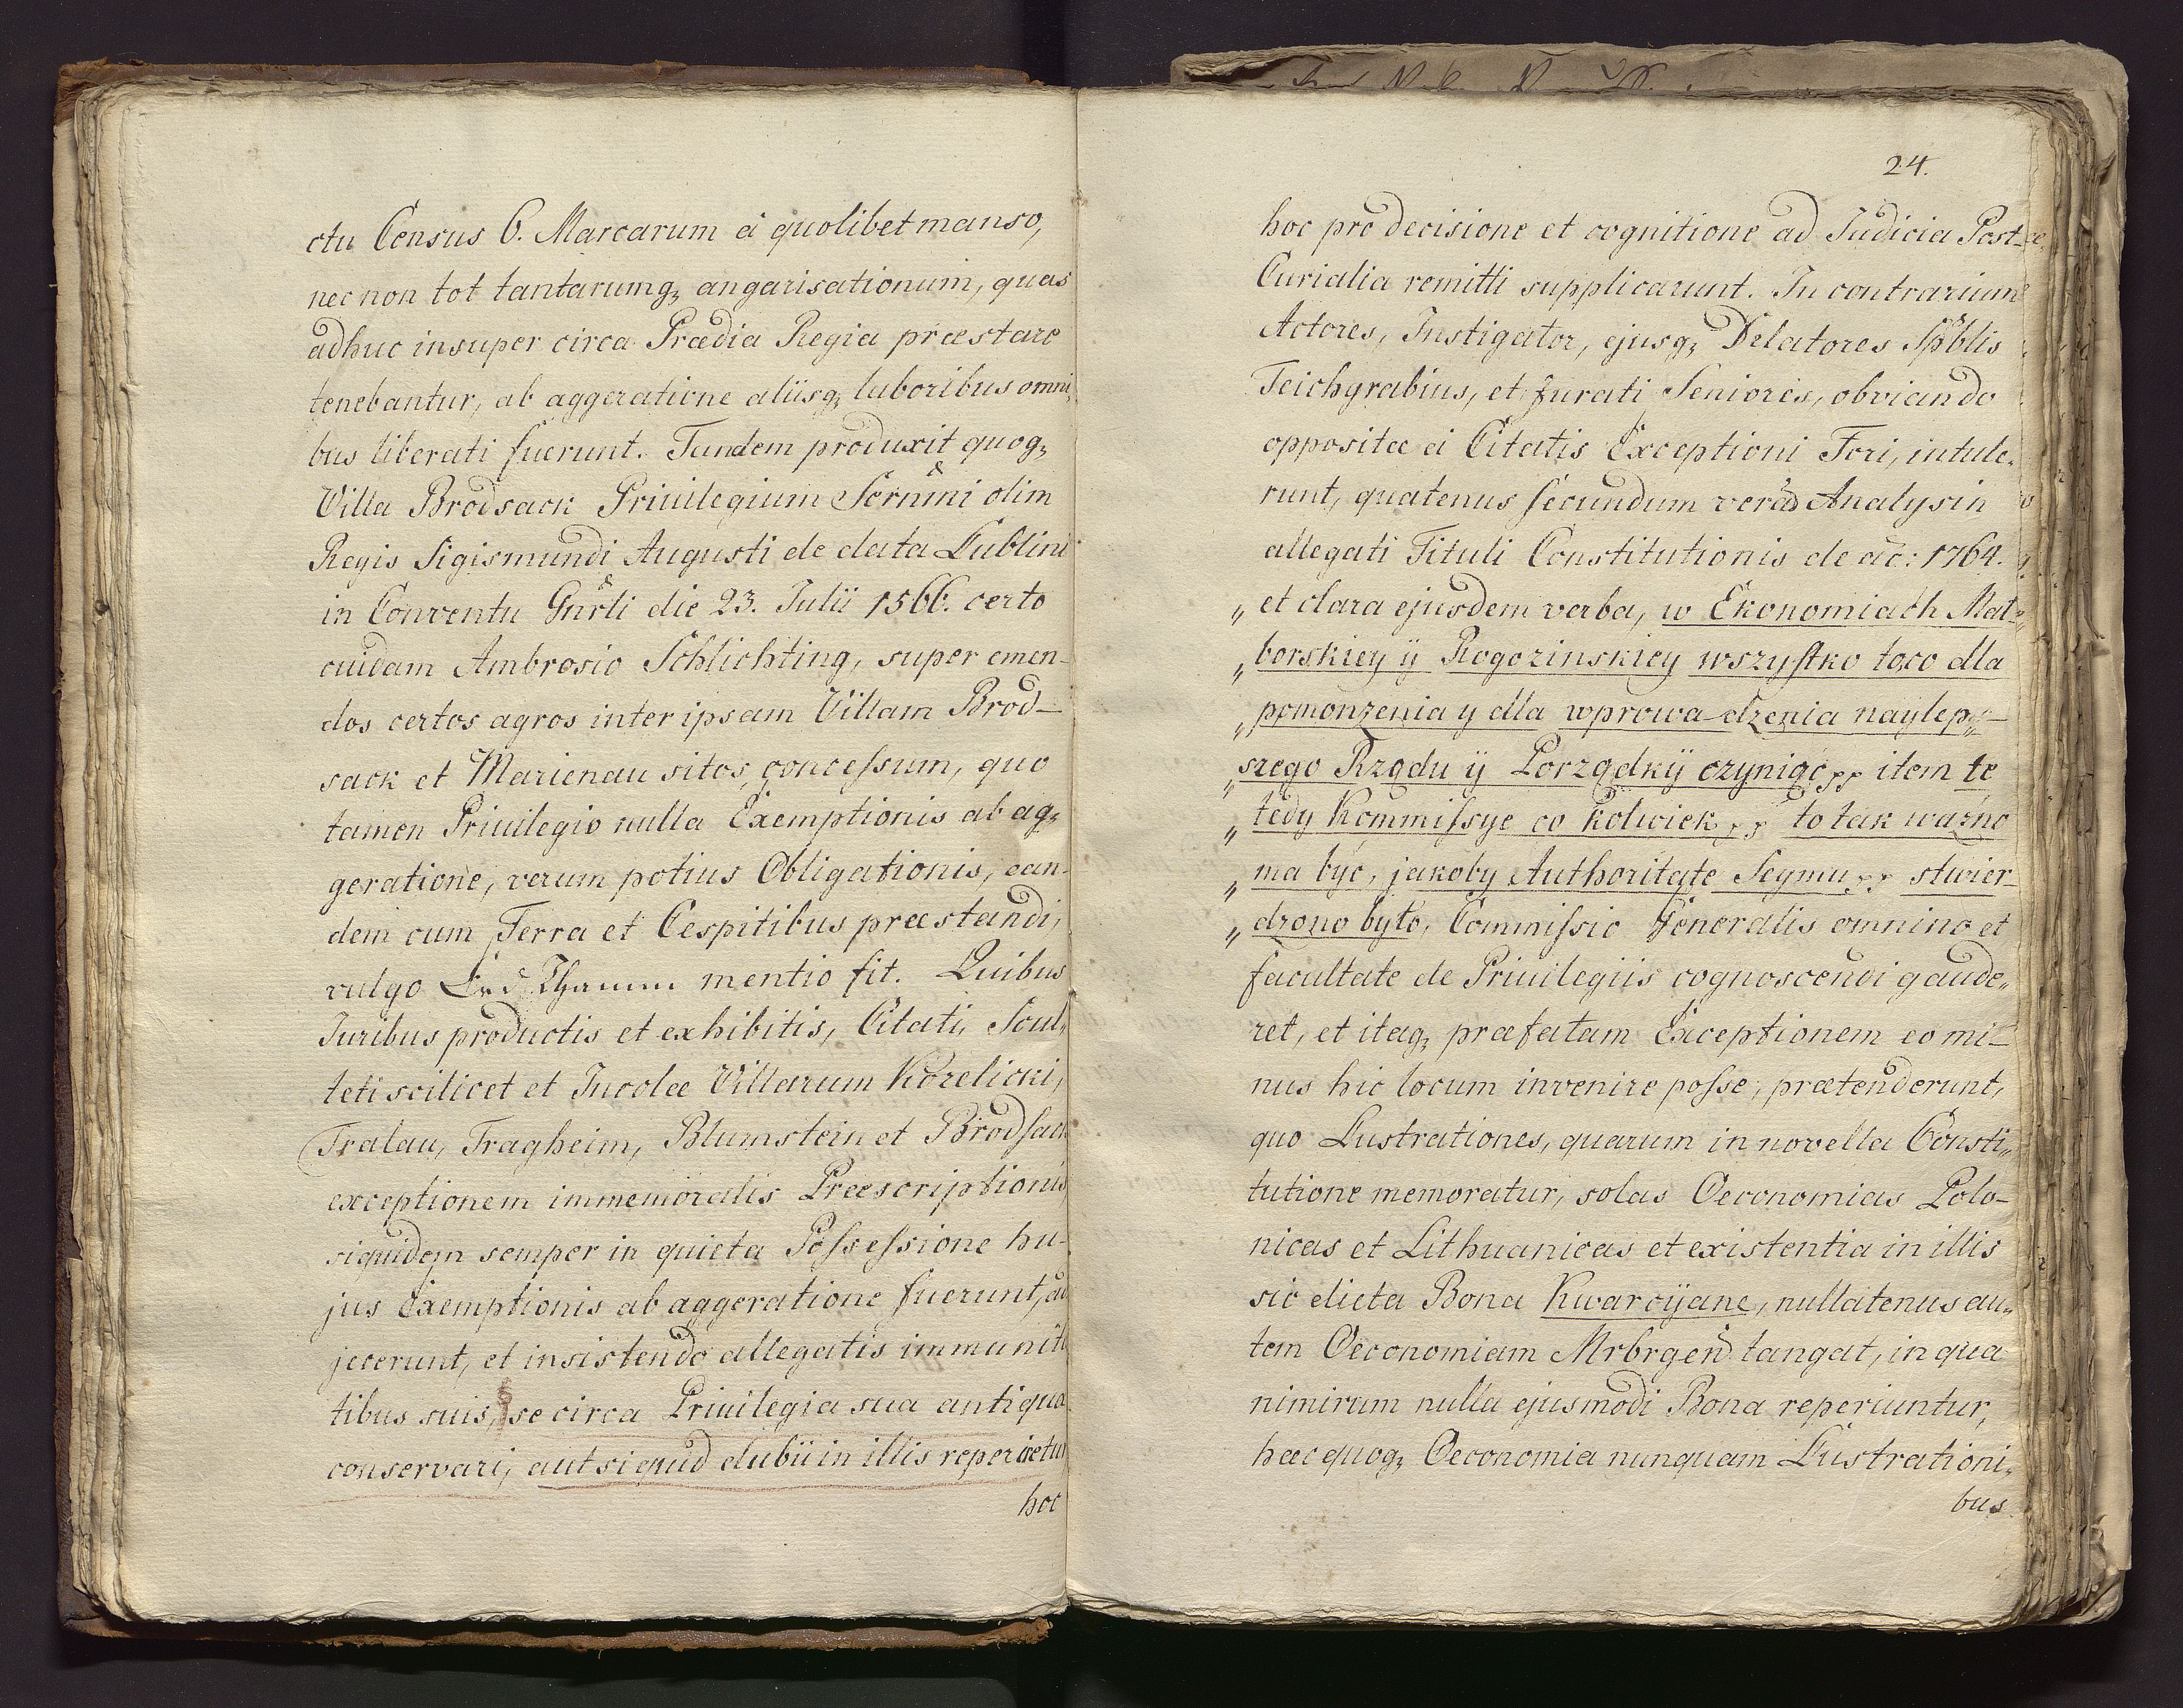 ctu Census 6. Marcarum à quolibet manso,
nec non tot tantarumq; angarisationum, quas
adhuc insuper circa Prædia Regia præstare
tenebantur, ab aggeratione aliisq; laboribus omni„
bus liberati fuerunt. Tandem produxit quoq;
Villa Brodsack Privilegium Sernm̃i olim
Regis Sigismundi Augusti de data Lublini
in Conventu Gnr̃li die 23. Julii 1566. certo
cuidam Ambrosio Schlichting, super emen-
dos certos agros inter ipsam Villam Brod-
sack et Marienau sitos, concessum, quo
tamen Privilegio nulla Exemptionis ab ag„
geratione, verum potius Obligationis, ean-
dem cum Terra et Cespitibus præstandi,
vulgo mentio fit. Quibus
Juribus productis et exhibitis, Citati, Scul„
teti scilicet et Incolæ Villarum Korelicki,
Tralau, Tragheim, Blumstein et Brodsack
exceptionem immemorialis Præscriptionis
siquidem semper in quieta Possessione hu-
jus Exemptionis ab aggeratione fuerunt, ad
jecerunt, et insistendo allegatis immunita
tibus suis, se circa Privilegia sua antiqua
conservari, aut si quid dubii in illis reperietur
hoc
24.
hoc pro decisione et cognitione ad Judicia Post-
Curialia remitti supplicarunt. In contrarium
Actores, Instigator, ejusq; Delatores Spb̃lis
Teichgrabius, et Jurati Seniores, obviando
oppositæ à Citatis Exceptioni Fori, intule„
runt, quatenus secundum veram Analysin
allegati Tituli Constitutionis de ao: 1764.
„ et clara ejusdem verba, w Ekonomiach Mal„
„ borskiey ÿ Rogozinskiey wszystko to co dla
„ pomonzenia y dla wprowadzenia naylep„
„ szego Rządu ÿ Porządkÿ czyniąc pp item te
„ tedy Kommissye co kolwiek pp to tak wazno
„ ma być, jakoby Authoritate Seymu pp stwier-
„ dzono było, Commissio Generalis omnino et
facultate de Privilegiis cognoscendi gaude„
ret, et itaq; præfatam Exceptionem eo mi-
nus hic locum invenire posse, prætenderunt,
quo Lustrationes, quarum in novella Consti„
tutione memoratur, solas Oeconomias Polo-
nicas et Lithuanicas et existentia in illis
sic dicta Bona Kwarcÿane, nullatenus au„
tem Oeconomiam Mrbrgen̄ tangat, in qua
nimirum nulla ejusmodi Bona reperiuntur,
hæc quoq; Oeconomia nunquam Lustrationi„
bus